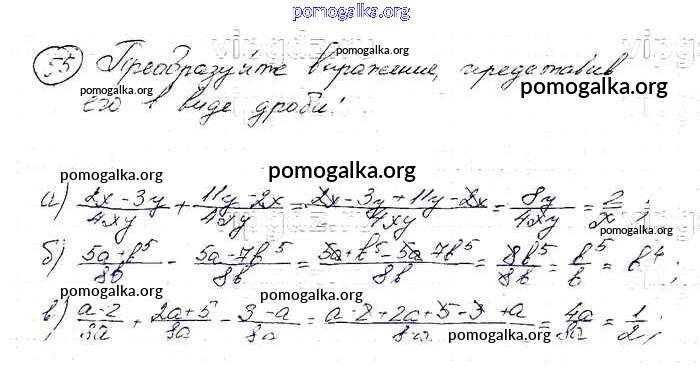 pomogalka.org
55 Преобразуйте выражение, представив
pomogalka.org
pomogalka.org
его в виде дроби:
pomogalka.org
pomogalka.org
pomogalka.org
pomogalka.org
а) (2x - 3y)/(4xy) + (11y - 2x)/(4xy) = (2x - 3y + 11y - 2x)/(4xy) = 8y/(4xy) = 2/x ;
pomogalka.org
pomogalka.org
б) (5a + b^5)/(8b) - (5a - 7b^5)/(8b) = (5a + b^5 - 5a 7b^5)/(8b) = 8b^5/(8b) = b^5/b = b^4 ;
pomogalka.org
pomogalka.org
pomogalka.org
в) (a - 2)/(8a) + (2a + 5)/(8a) - (3 - a)/(8a) = (a - 2 + 2a + 5 - 3 + a)/(8a) = 4a/(8a) = 1/2 ;
pomogalka.org
pomogalka.org